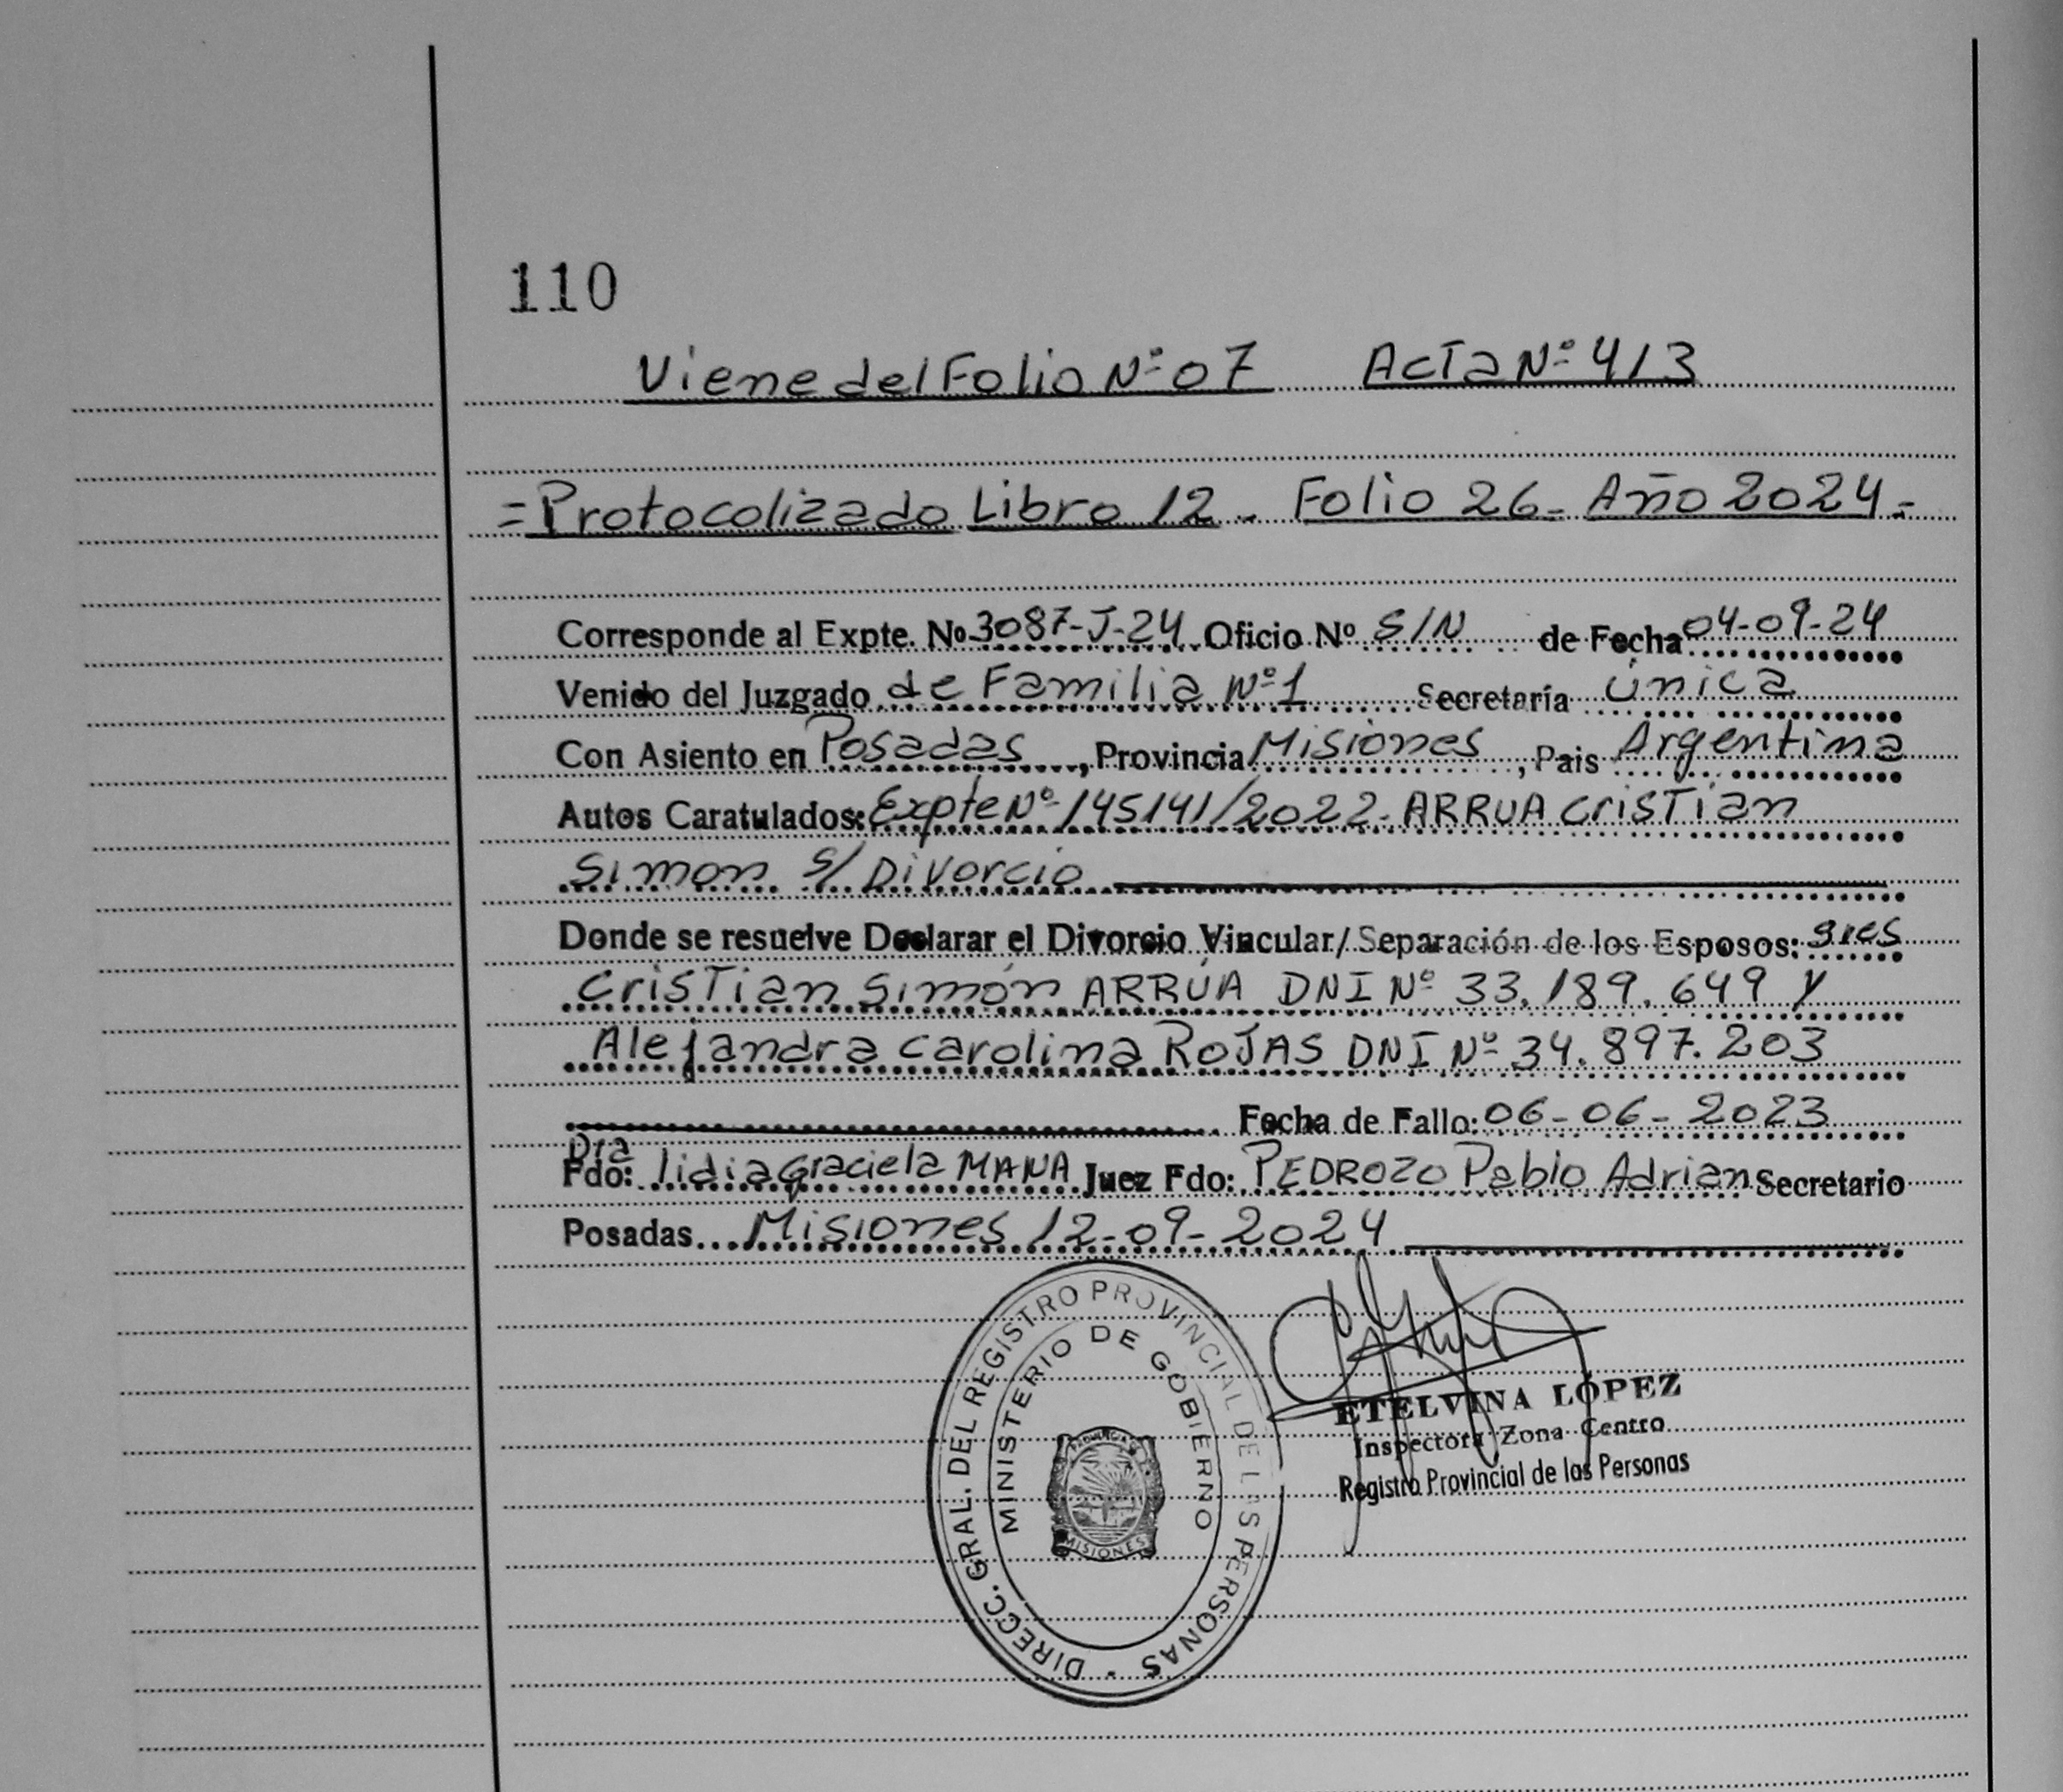 110
Viene del Folio Nº 07 Acta Nº 413
= Protocolizado Libro 12 - Folio 26 - Año 2024 -
Corresponde al Expte. Nº 3087-J-24 Oficio Nº S/N de Fecha 04-09-24
Venido del Juzgado de Familia Nº 1 Secretaría única
Con Asiento en Posadas, Provincia Misiones, Pais Argentina
Autos Caratulados: Expte Nº 145141/2022- ARRUA Cristian
Simon S/ Divorcio
Donde se resuelve Declarar el Divorcio Vincular/Separación de los Esposos:
Cristian Simón ARRÚA DNI Nº 33.189.649 y
Alejandra Carolina ROJAS DNI Nº 34.897.203
Fecha de Fallo: 06-06-2023
Dra
Fdo: lidia Graciela Juez Fdo: PEDROZO Pablo Adrian Secretario
Posadas... Misiones 12-09-2024
DIRECC. GRAL. DEL REGISTRO PROVINCIAL DE LAS PERSONAS
MINISTERIO DE GOBIERNO
PROVINCIA DE
MISIONES
ETELVINA LÓPEZ
Inspectora Zona Centro
Registro Provincial de las Personas